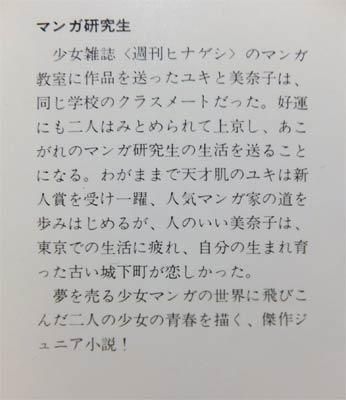 マンガ研究生
少女雑誌〈週刊ヒナゲシ〉のマンガ
教室に作品を送ったユキと美奈子は、
同じ学校のクラスメートだった。好運
にも二人はみとめられて上京し、あこ
がれのマンガ研究生の生活を送ること
になる。わがままで天才肌のユキは新
人賞を受け一躍、人気マンガ家の道を
歩みはじめるが、人のいい美奈子は、
東京での生活に疲れ、自分の生まれ育
った古い城下町が恋しかった。
夢を売る少女マンガの世界に飛びこ
んだ二人の少女の青春を描く、傑作ジ
ュニア小説！